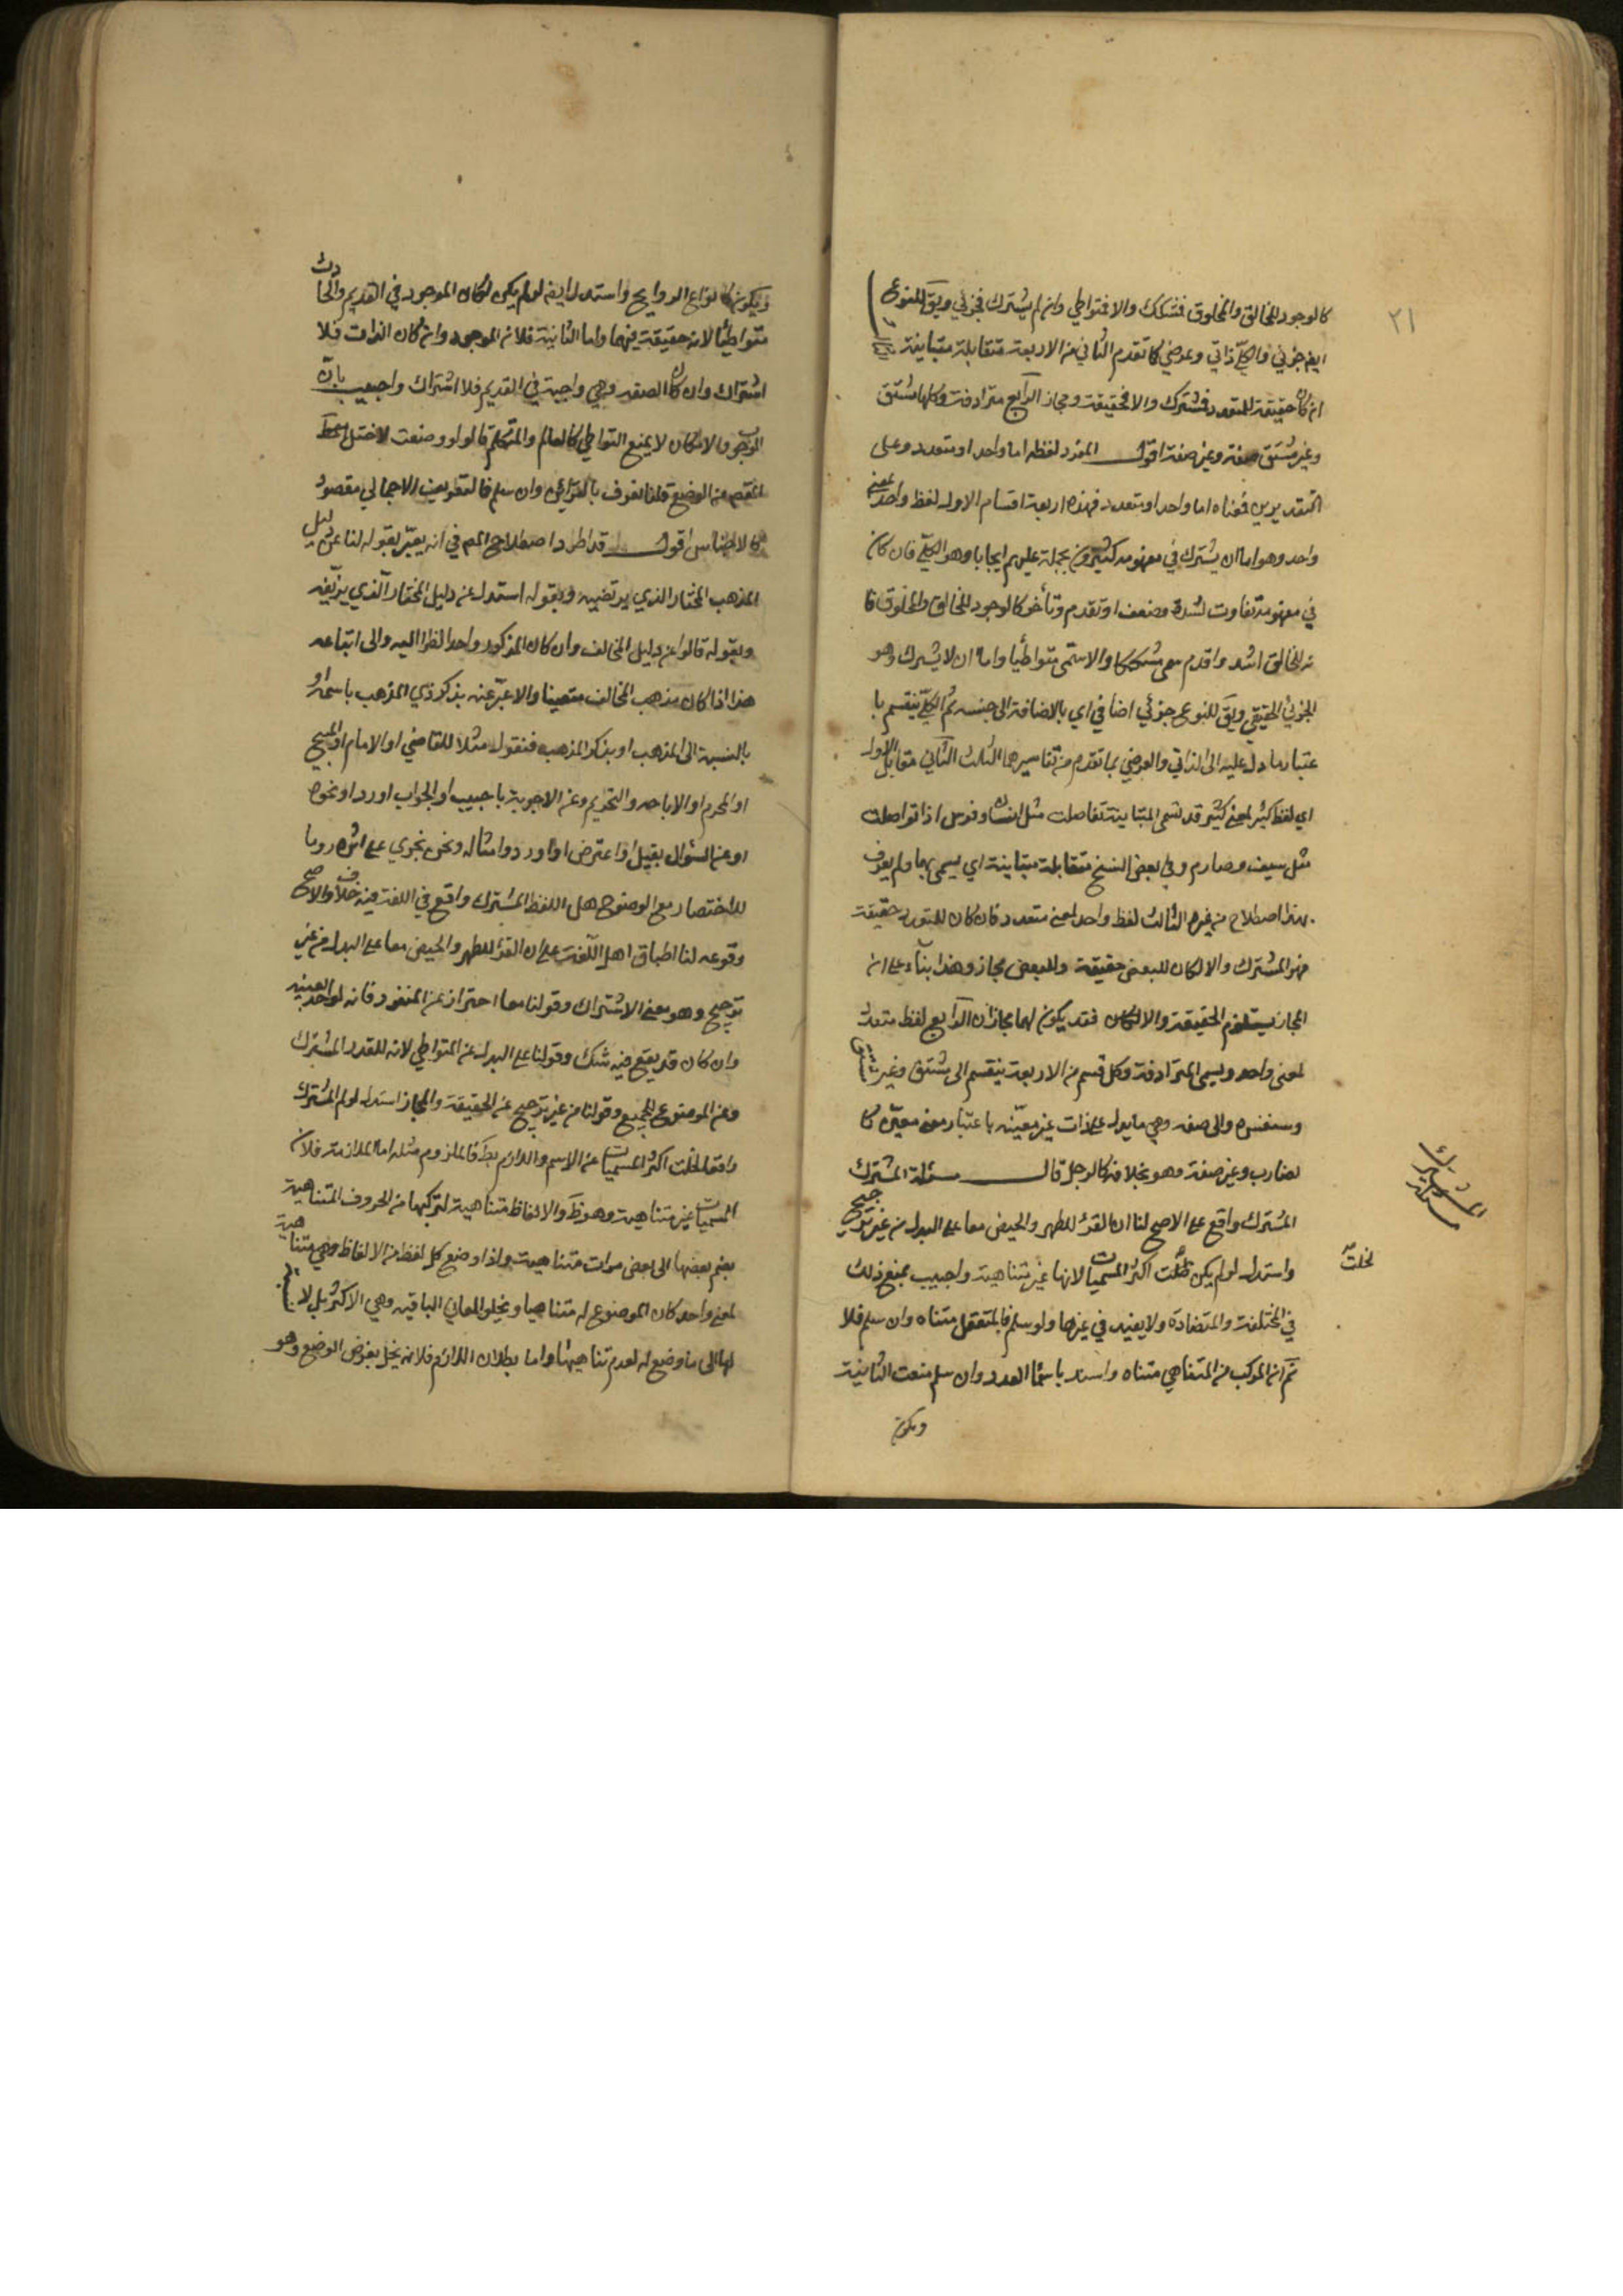 ٢١
كالوجود للخالق والمخلوق فمشكك والا فمتواطي وان لم يشترك فجزئي ويق للنوع
ايض جزئي والكلي ذاتي وعرضي كما تقدم الثاني من الاربعة متقابلة متباينة
ان كان حقيقة للمتعدد فمشترك والا فحقيقة ومجاز الرابع مترادفة وكلها مشتق
وغير مشتق صفة وغير صفة اقول المفرد لفظه اما واحد او متعدد وعلى
التقديرين فمعناه اما واحد او متعدد فهذه اربعة اقسام الاول لفظ واحد لمعنى
واحد وهو اما ان يشترك في مفهومه كثيرون بحمله عليهم ايجابا وهو الكلي فان كان
في مفهومه تفاوت لشدة وضعف او تقدم وتأخر كالوجود للخالق والمخلوق فا
نه للخالق اشد واقدم سمى مشككا والا سمى متواطيا واما ان لا يشترك وهو
الجزئي الحقيقي ويق للنوع جزئي اضافي اي بالاضافة الى جنسه ثم الكلي ينقسم با
عتبار ما دل عليه الى الذاتي والعرضي بما تقدم من تفاسيرها الثلث الثاني مقابل الاول
اي لفظ كثير لمعنى كثير قد تسمى المتباينة تفاصلت مثل انسان وفرس او تواصلت
مثل سيف وصارم وفي بعض النسخ متقابلة متباينة اي يسمى بهما ولم يعرف
بهذا اصطلاح من غيره الثالث لفظ واحد لمعنى متعدد فان كان للمتعدد حقيقة
فهو المشترك والا لكان للبعض حقيقة وللبعض مجاز وهذا بناء على ان
المجاز يستلزم الحقيقة والا لكان فقد يكون لهما مجازان الرابع لفظ متعدد
لمعنى واحد ويسمى المترادفة وكل قسم من الاربعة ينقسم الى مشتق وغير مشتق
وستفسره والى صفة وهي ما يدل على ذات غير معينة باعتبار معنى معين كا
لضارب وغير صفة وهو بخلافه كالرجل قال مسئلة المشترك
المشترك واقع على الاصح لنا ان القرء للطهر والحيض معا على البدل من غير ترجيح
واستدل لو لم يكن لخلت اكثر المسميات لانها غير متناهية واجيب بمنع ذلك
في المختلفة والمتضادة ولا يفيد في غيرها ولو سلم فالمتعقل متناه وان سلم فلا
نم ان المركب من المتناهي متناه واسند باسماء العدد وان سلم منعت الثانية
ويكون
مسئلة المشترك
لخلت
ويكون كانواع الروايح واستدل ايض لو لم يكن لكان الموجود في القديم والحادث
متواطئا لانه حقيقة فيهما واما الثانية فلان الموجود ان كان الذات فلا
اشتراك وان كان الصفة وهي واجبة في القديم فلا اشتراك واجيب بان
الوجوب والامكان لا يمنع التواطي كالعالم والمتكلم قالوا لو وضعت لاختل
المقصود من الوضع قلنا يعرف بالقرائن وان سلم فالتعريف الاجمالي مقصود
كالاجناس اقول قد اطرد اصطلاح المص في انه يعبر بقوله لنا عن دليل
المذهب المختار الذي يرتضيه وبقوله استدل عن دليل المختار الذي يزيفه
وبقوله قالوا عن دليل المخالف وان كان المذكور واحدا نظرا اليه والى اتباعه
هذا اذا كان مذهب المخالف متعينا والا عبر عنه بذكر ذي المذهب باسمه او
بالنسبة الى المذهب او بذكر المذهب فنقول مثلا للقاضي او الامام او المبيح
او المحرم او الاباحة والتحريم وعن الاجوبة باجيب او الجواب او رد او نحوه
او عن السؤال بقيل او اعترض او اورد وامثاله ونحن نجري على اثره روما
للاختصار مع الوضوح هل اللفظ المشترك واقع في اللغة فيه خلاف والاصح
وقوعه لنا اطباق اهل اللغة على ان القرء للطهر والحيض معا على البدل من غير
ترجيح وهو معنى الاشتراك وقولنا معا احتراز عن المنفرد فانه لواحد بعينه
وان كان قد يقع فيه شك وقولنا على البدل عن المتواطي لانه للقدر المشترك
وعن الموضوع للجميع وقولنا من غير ترجيح عن الحقيقة والمجاز استدل لو لم المشترك
واقعا لخلت اكثر المسميات عن الاسم واللازم بط فالملزوم مثله اما الملازمة فلان
المسميات غير متناهية وهو ظ والالفاظ متناهية لتركبها من الحروف المتناهية
بضم بعضها الى بعض مرات متناهية واذا وضع كل لفظ من الالفاظ وهي متناهية
لمعنى واحد كان الموضوع له متناهيا ويخلو المعاني الباقية وهي الاكثر بل لا
لها الى ما وضع له لعدم تناهيها واما بطلان اللازم فلانه يخل بغرض الوضع وهو